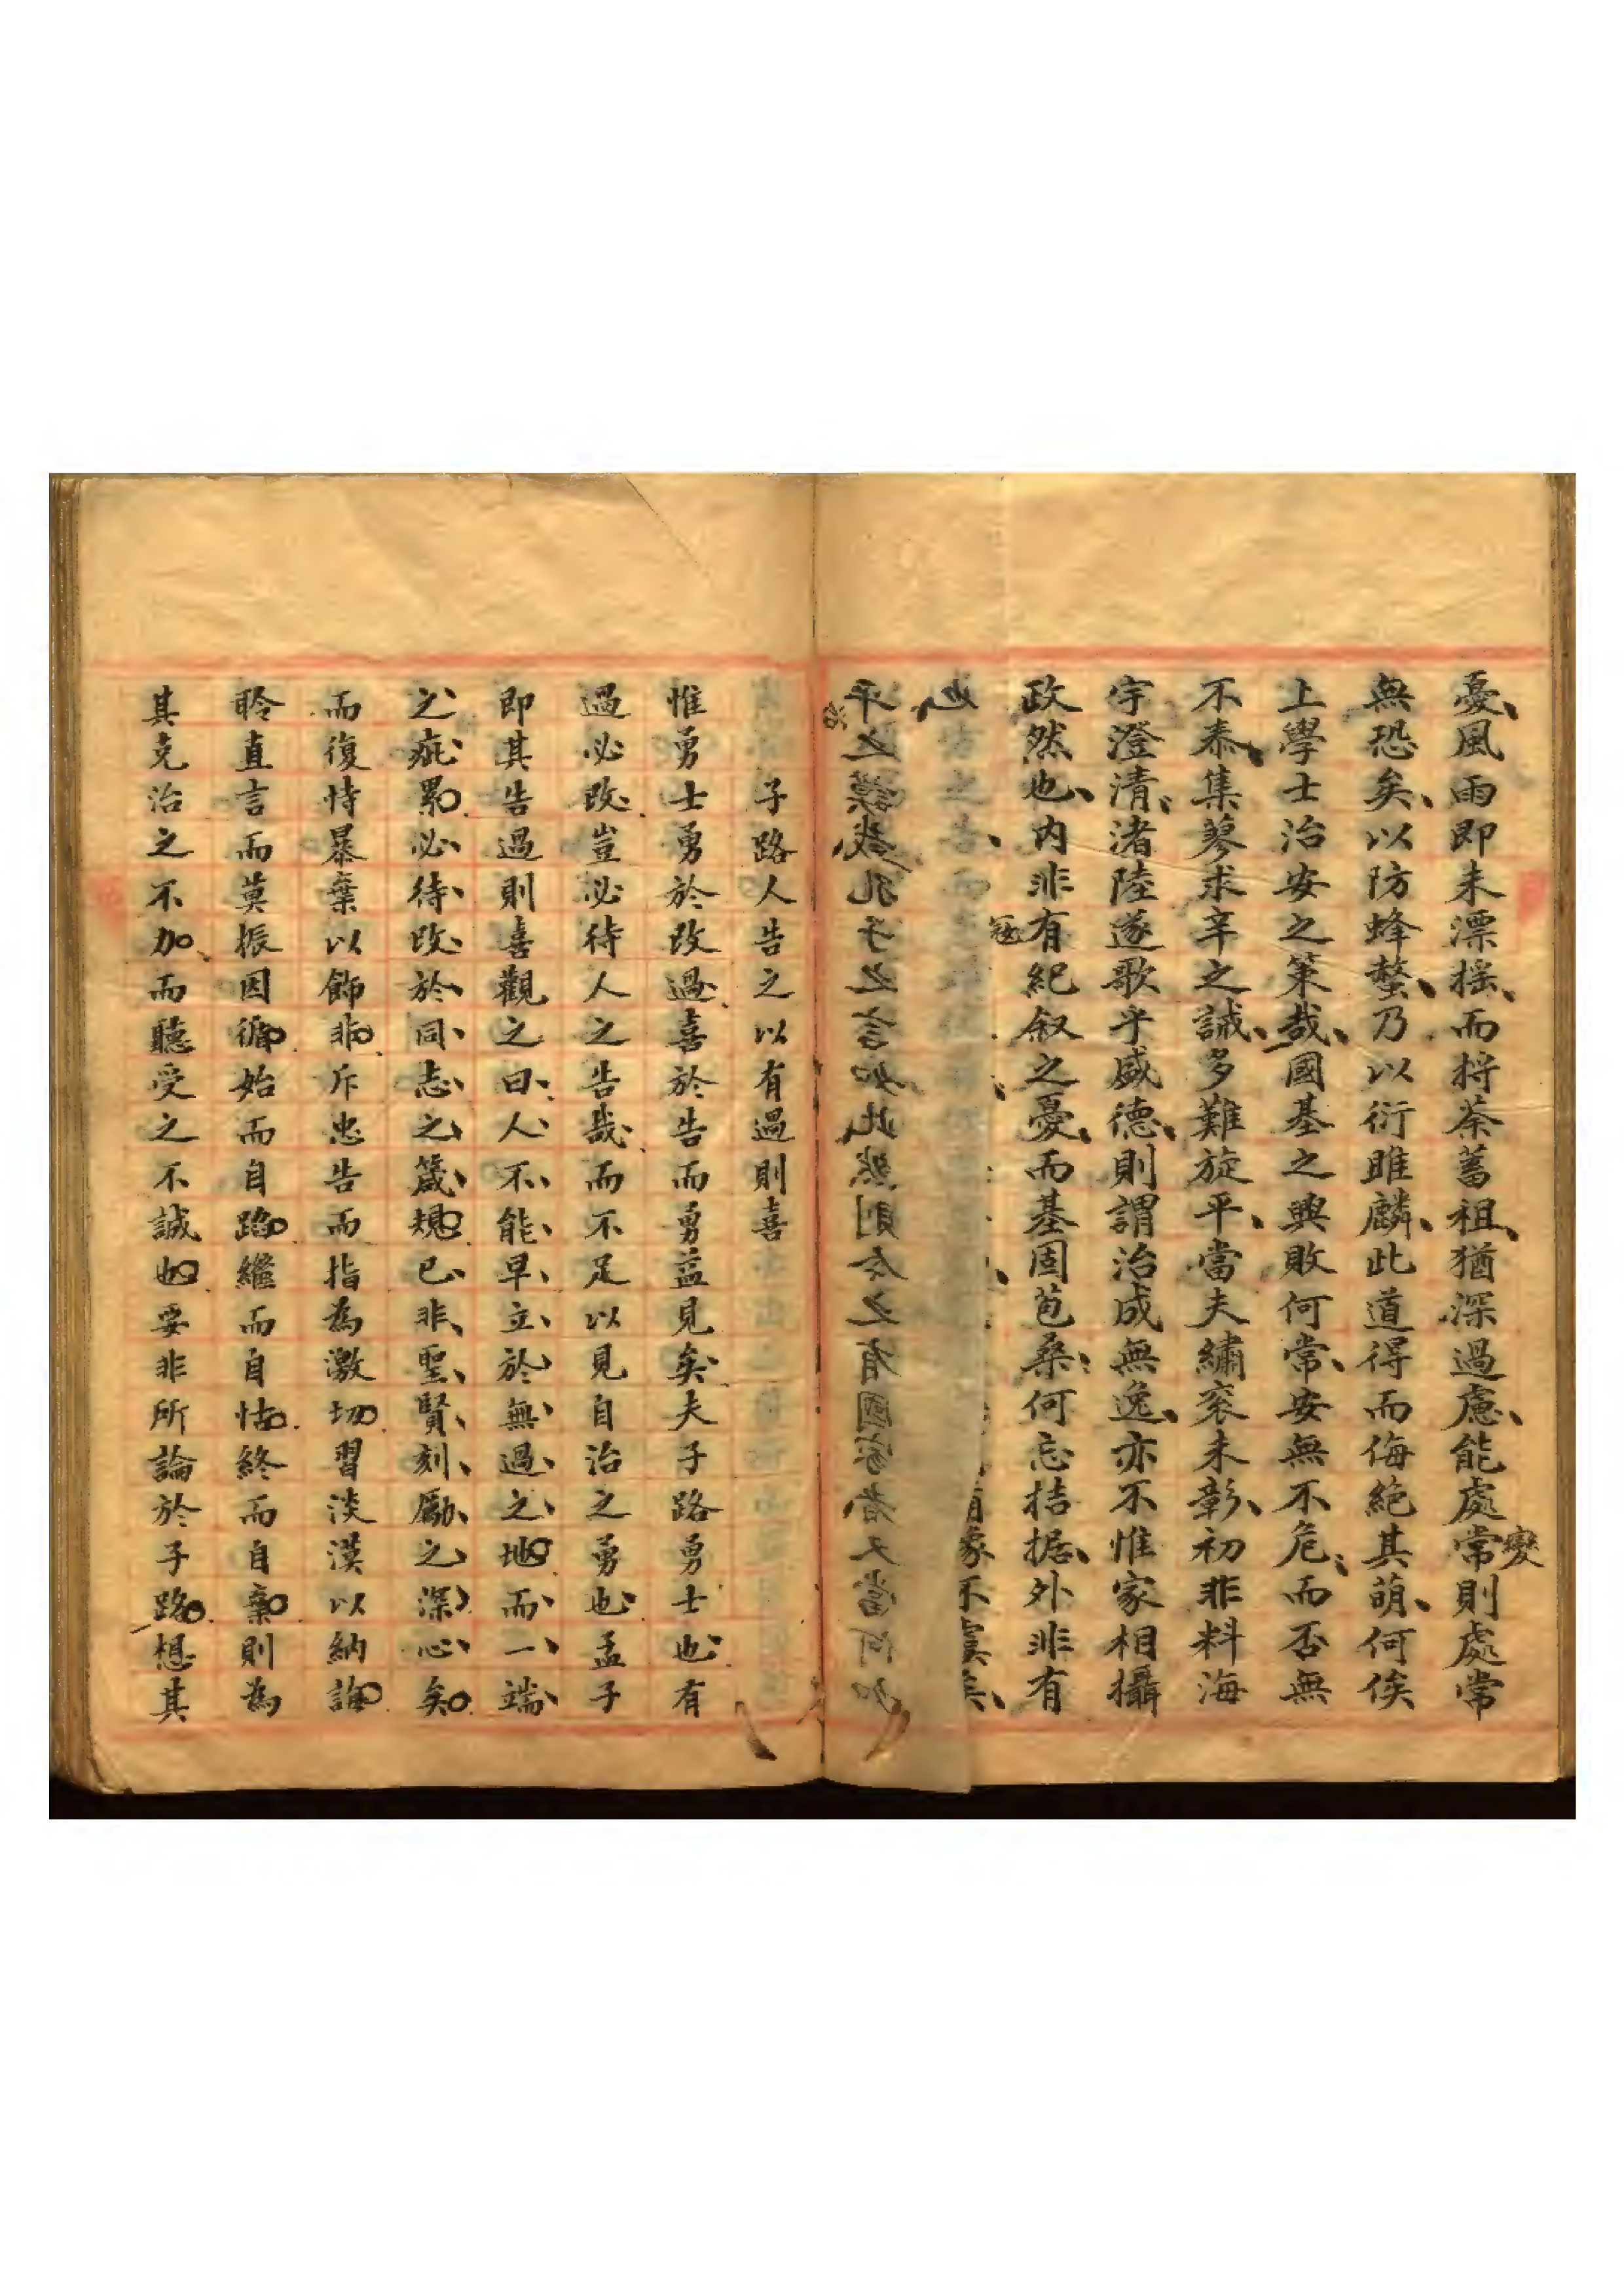 憂風雨即未漂搖而捋荼蓄租猶深過慮能處常則處常
變
無恐矣以防蜂螫乃以衍雎麟此道得而侮絕其萌何俟
上學士治安之策哉國基之興敗何常安無不危而否無
不泰集蓼求辛之誠多難旋平當夫繡衮未彰初非料海
宇澄清渚陸遂歌乎盛德則謂治成無逸亦不惟家相攝
政然也內非有紀叙之憂而基固苞桑何忘拮据外非有
寇
象不虞矣
平之謨哉孔子之言如此然則今之有國家者又當何如
治
子路人告之以有過則喜
惟勇士勇於改過喜於告而勇益見矣夫子路勇士也有
過必改豈必待人之告哉而不足以見自治之勇也孟子
即其告過則喜觀之曰人不能早立於無過之地而一端
之疵累必待改於同志之箴規已非聖賢刻勵之深心矣
而復恃暴棄以飾非斥忠告而指為激切習淡漠以納誨
聆直言而莫振因循始而自蹈繼而自怙終而自棄則為
其克治之不加而聽受之不誠也要非所論於子路想其